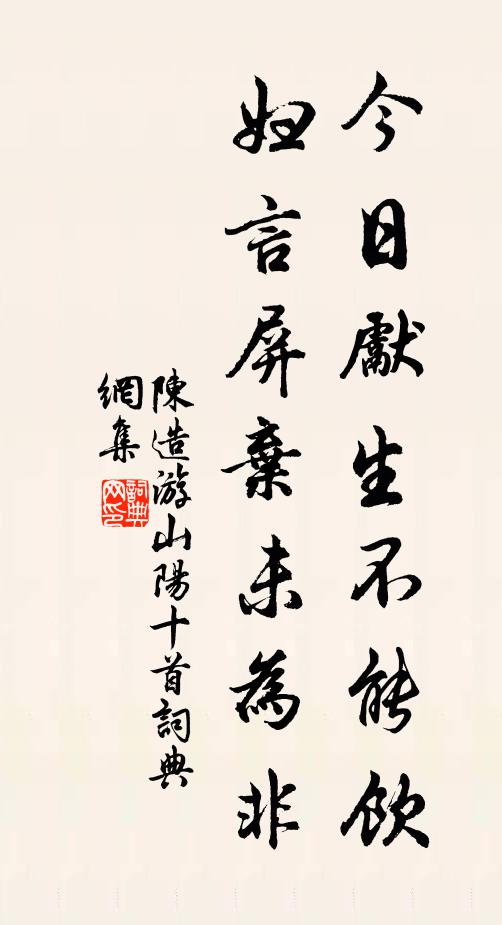 今日獻生不能飲
妇言屏棄未為非
陳造游山陽十首詞典
網集
詞典網印